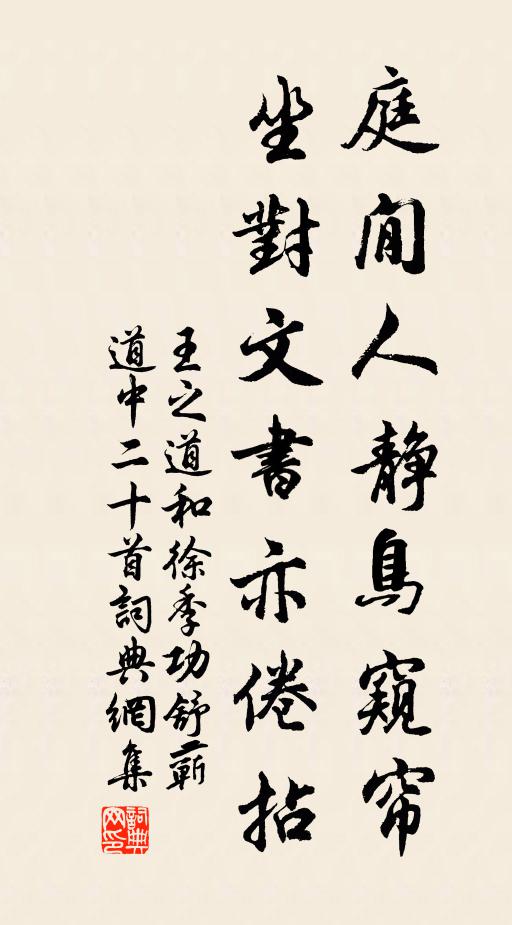 庭閒人静鳥窺帘
坐對文書亦倦拈
王之道和徐季功舒蘄
道中二十首詞典網集
詞典网印